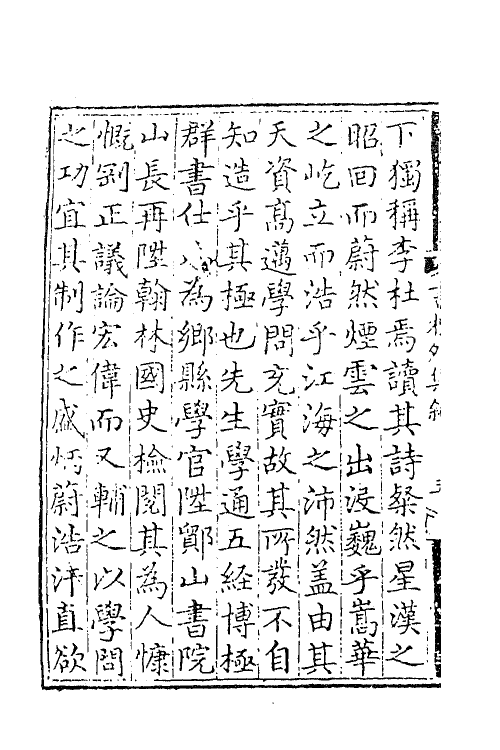 下獨稱李杜焉讀其詩粲然星漢之
昭回而蔚然煙雲之出浸巍乎嵩華
之屹立而浩乎江海之沛然盖由其
天資髙邁學問充實故其所發不自
知造乎其極也先生學通五経博極
群書仕為鄉縣學官陞鄮山書院
山長再陞翰林國史檢閱其為人慷
慨剛正議論宏偉而又輔之以學問
之功宜其制作之盛炳蔚浩汗直欲